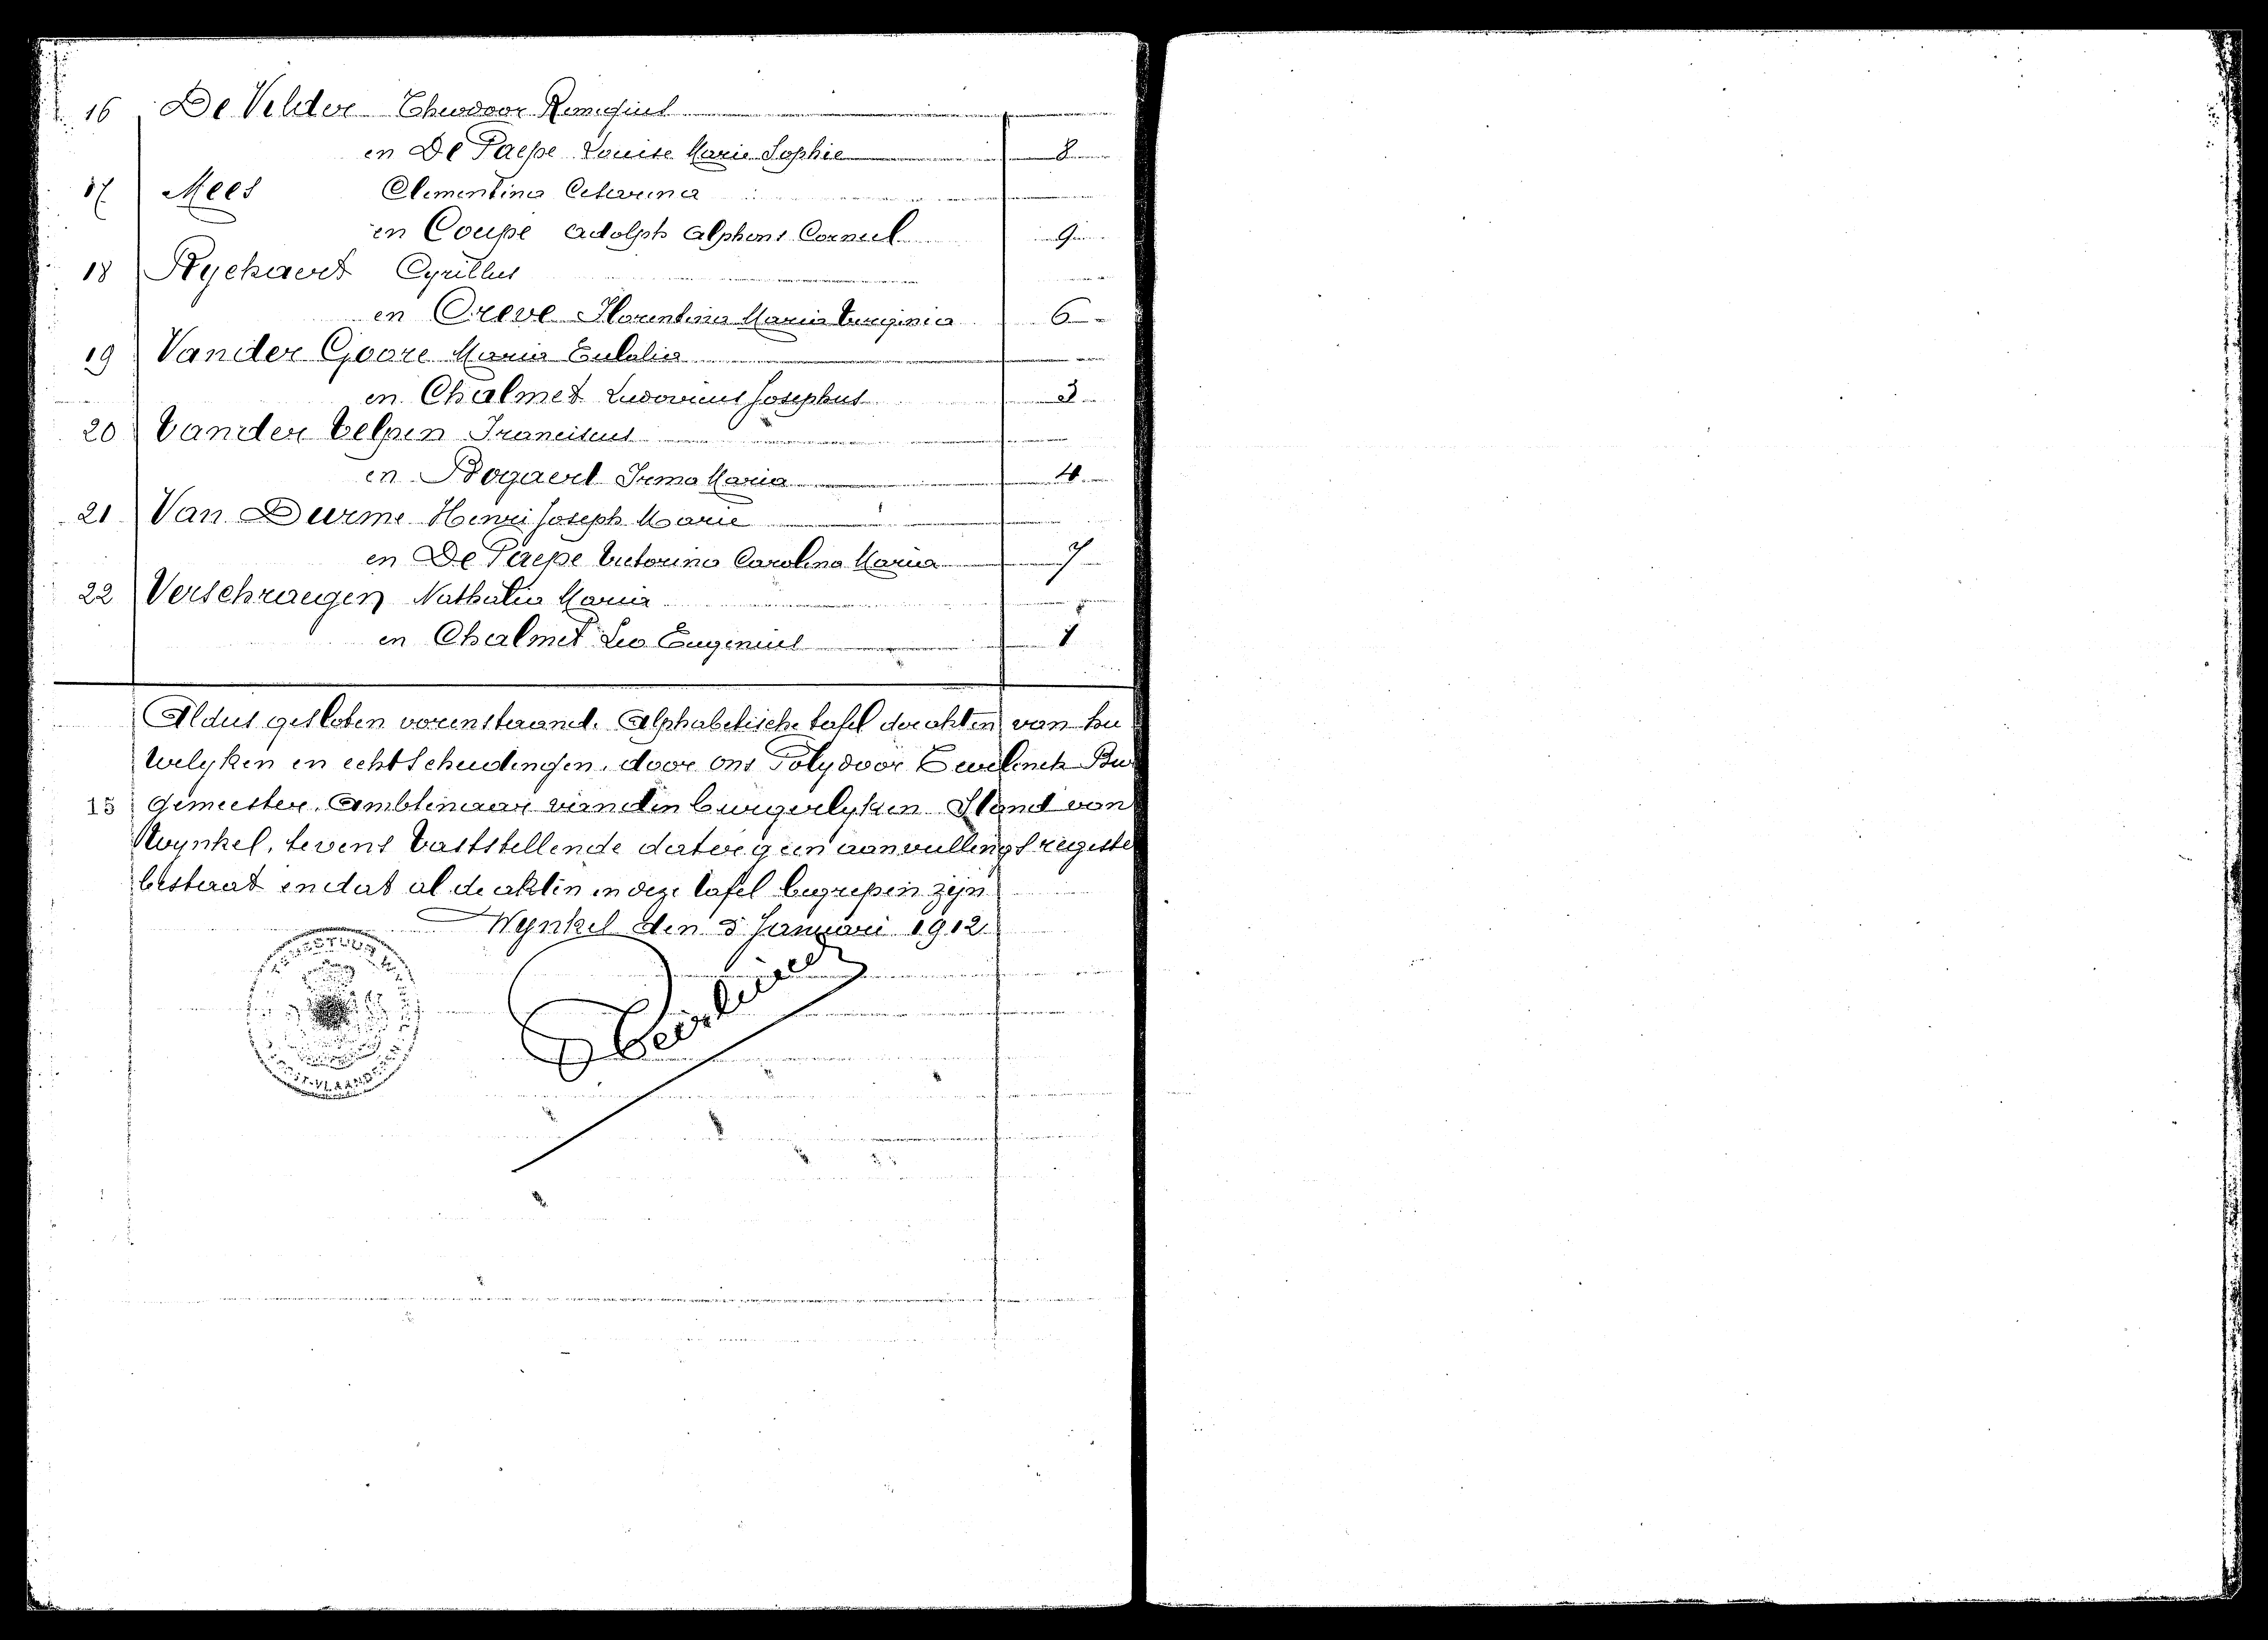 16 De Velder Theodoor Remigius
en De Paepe Louise Marie Sophie 8
17 Mees Clementina Catharina
en Coupé Adolph Alphons Corneel 9
18 Ryckaert Cyrillus
en Creve Florentina Maria Virginia 6
19 Vander Goore Maria Eulalia
en Chalmet Ludovicus Josephus 3
20 Vander Velpen Franciscus
en Bogaert Irma Maria 4
21 Van Durme Henri Joseph Marie
en De Paepe Victorina Carolina Maria 7
22 Verschraegen Nathalia Maria
en Chalmet Leo Eugenius 1
Aldus gesloten vorenstaand. Alphabetische tafel der akten van hu
welyken en echtscheidingen, door ons Polydoor Bu
15 gemeester, Ambtenaar van den burgerlyken Stand van
Wynkel, tevens vaststellende dat er geen aanvullingsregister
bestaat en dat al de akten in deze tafel begrepen zijn
Wynkel den 5 Januari 1912.
OOST-VLAANDEREN